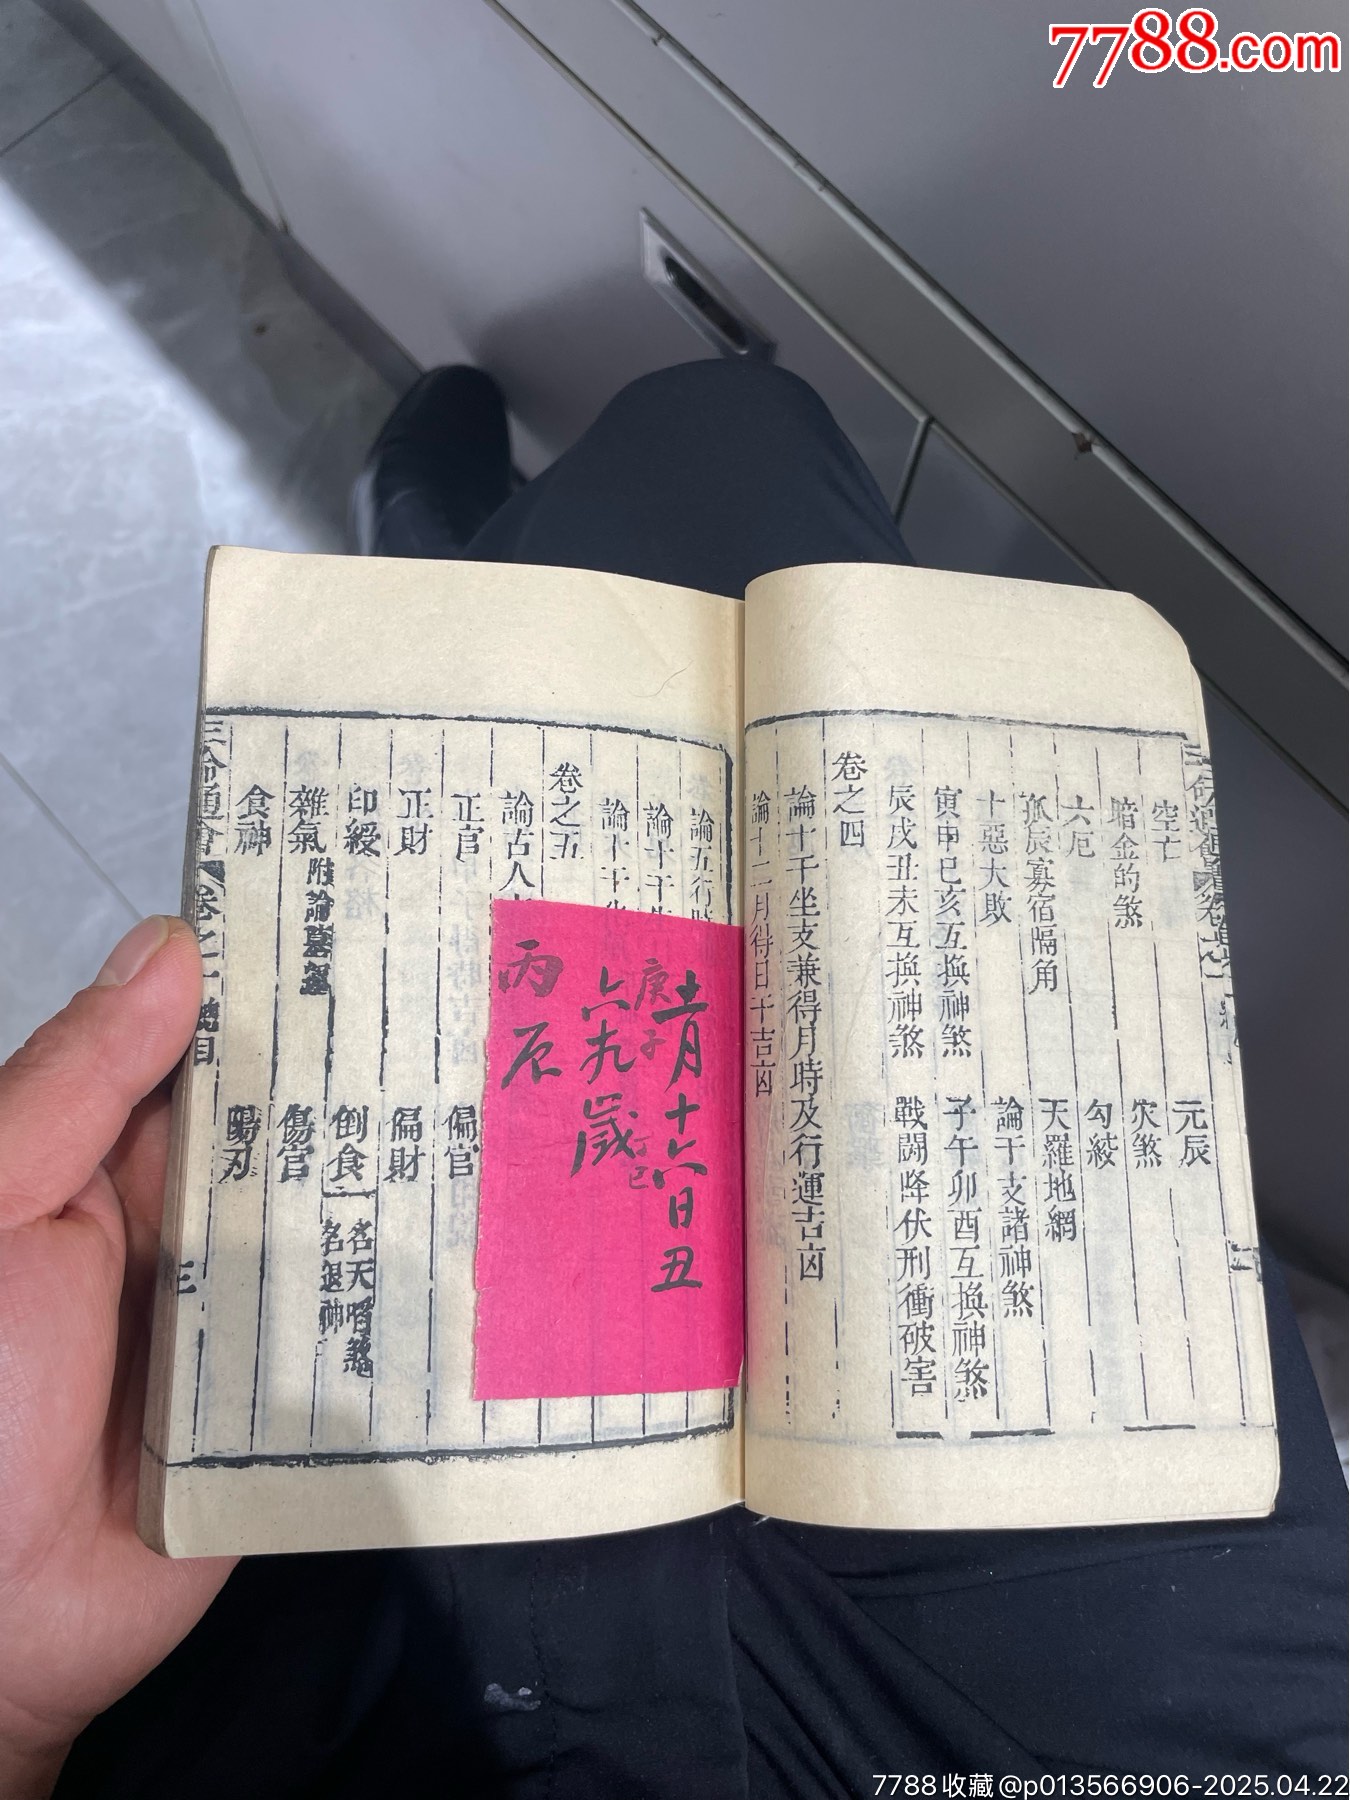 7788.com
元辰
空亡
災煞
暗金的煞
勾絞
六厄
天羅地網
孤辰寡宿隔角
論干支諸神煞
十惡大敗
子午卯酉互換神煞
寅申巳亥互換神煞
戰鬪降伏刑衝破害
辰戌丑未互換神煞
卷之四
論十干坐支兼得月時及行運吉凶
論十二月得日干吉凶
論五行時
論十干
論十干
卷之五
論古人
正官
偏官
正財
偏財
印綬
倒食
一名天喑煞
一名退神
雜氣
附論墓
傷官
食神
陽刃
三命通會
卷之一
總目
三
十一月十六日丑
庚子
六十九歲
丁巳
丙辰
7788收藏@p013566906-2025.04.22